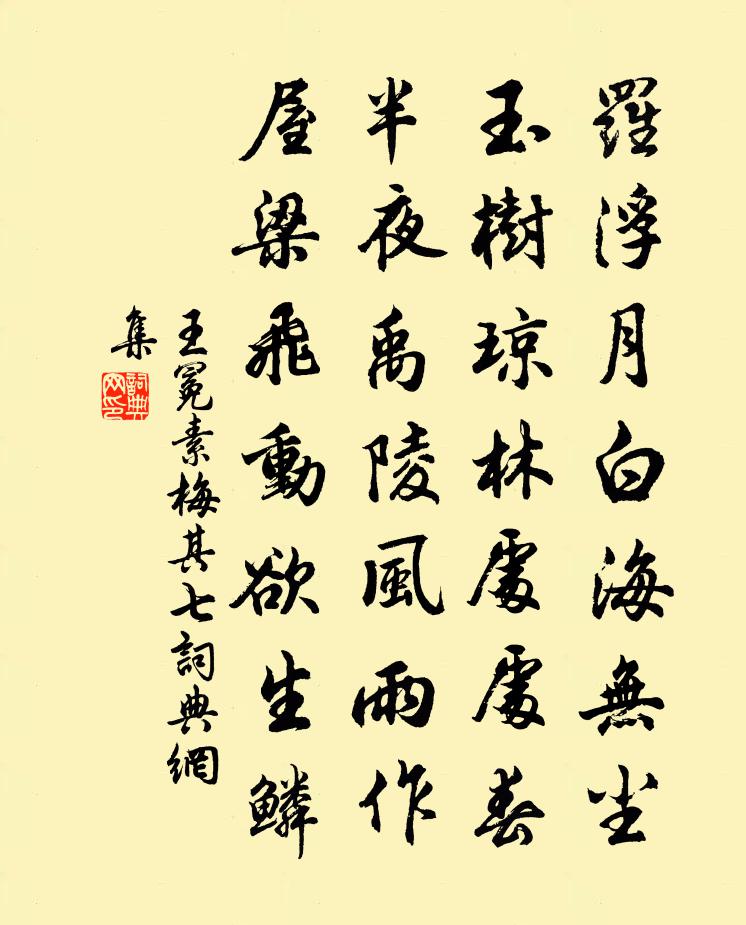 羅浮月白海無尘
玉樹琼林處處春
半夜禹陵風雨作
屋梁飛動欲生鱗
王冕素梅其七詞典網
集
詞典网印